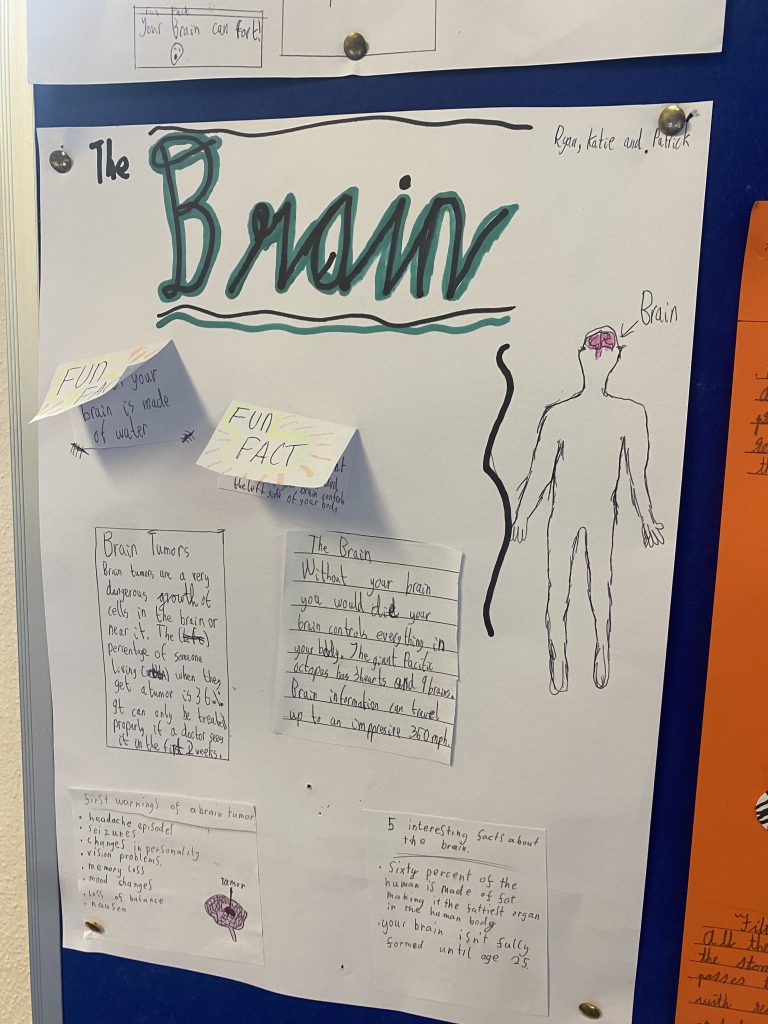 Fun Fact
Your Brain can fart!
The Brain
Ryan, Katie and. Patrick
Brain
FUN
your
brain is made
of water
FUN
FACT
brain controls
the left side of your body
Brain Tumors
Brain tumors are a very
dangerous growth of
cells in the brain or
near it. The
percentage of someone
living when they
get a tumor is 36%
It can only be treated
properly if a doctor sees
it in the first 2 weeks.
The Brain
Without your brain
you would die your
brain controls everything in
your body. The giant Pacific
octopus has 3 hearts and 9 brains.
Brain information can travel
up to an imppresive 350 mph.
First warnings of a brain tumor
• headache episodes
• seizures
• changes in personality
• vision problems.
• memory loss
• mood changes
• Loss of balance
• nausea
Tumor
5 interesting facts about
the brain.
• Sixty percent of the
human is made of fat
making it the fattiest organ
in the human body
• your brain isn't fully
formed until age 25.
All the
the
passes
with